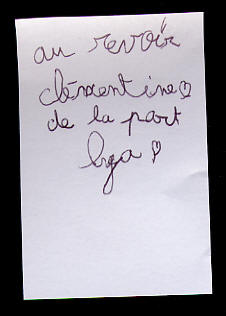 au revoir
clémentine
de la part
lyza